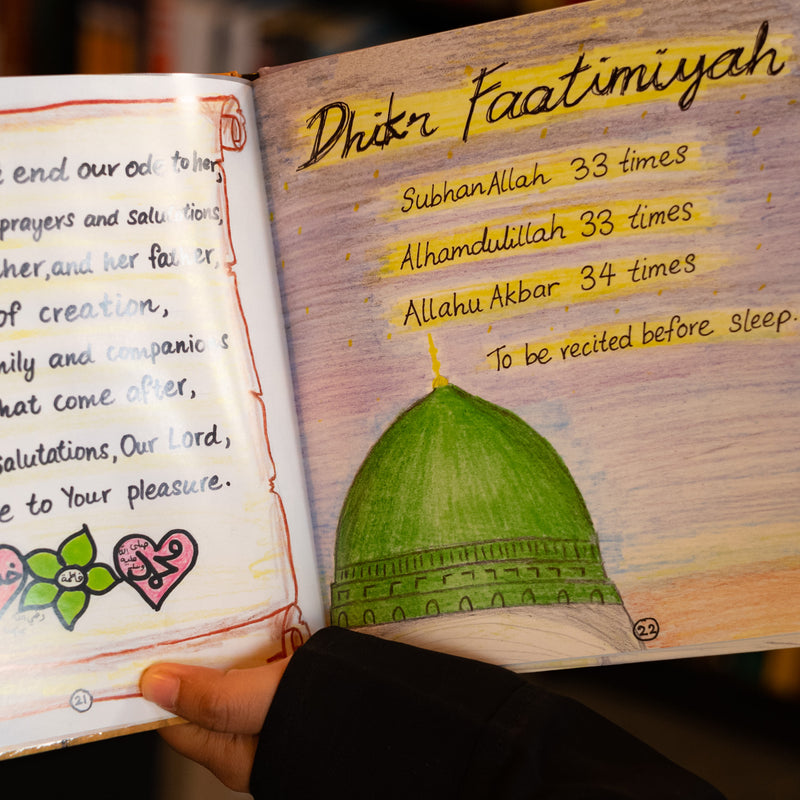 end our ode to her,
prayers and salutations,
her, and her father,
of creation,
and companions
that come after,
salutations, Our Lord,
to Your pleasure.
فاطمة
صلى الله عليه وسلم
محمد
21
Dhikr Faatimiyah
SubhanAllah 33 times
Alhamdulillah 33 times
Allahu Akbar 34 times
To be recited before sleep.
22